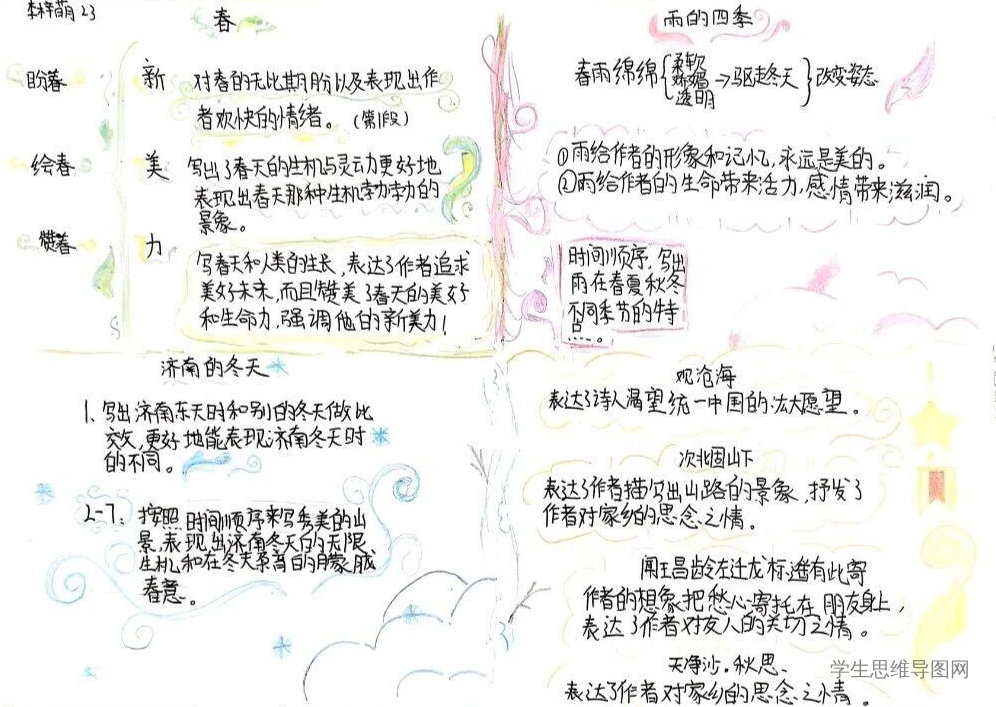 李梓萌 23
春
盼春 新 对春的无比期盼以及表现出作
者欢快的情绪。(第1段)
绘春 美 写出了春天的生机与灵动力更好地
表现出春天那种生机勃勃的
景象。
赞春 力
写春天和人类的生长,表达了作者追求
美好未来,而且赞美了春天的美好
和生命力,强调他的新美力!
雨的四季
春雨绵绵{柔软
娇媚→驱走冬天}改变姿态
透明
①雨给作者的形象和记忆,永远是美的。
②雨给作者的生命带来活力,感情带来滋润。
时间顺序,写出
雨在春夏秋冬
不同季节的特
点……。
济南的冬天
1、写出济南冬天时和别的冬天做比
较,更好地能表现济南冬天时
的不同。
2-7:按照时间顺序来写秀美的山
景,表现出济南冬天的无限
生机和在冬天系育的朦胧
春意。
观沧海
表达了诗人渴望统一中国的法大愿望。
次北固山下
表达了作者描写出山路的景象,抒发了
作者对家乡的思念之情。
闻王昌龄左迁龙标遥有此寄
作者的想象把愁心寄托在朋友身上,
表达了作者对友人的关切之情。
天净沙·秋思、
表达了作者对家乡的思念之情。
学生思维导图网